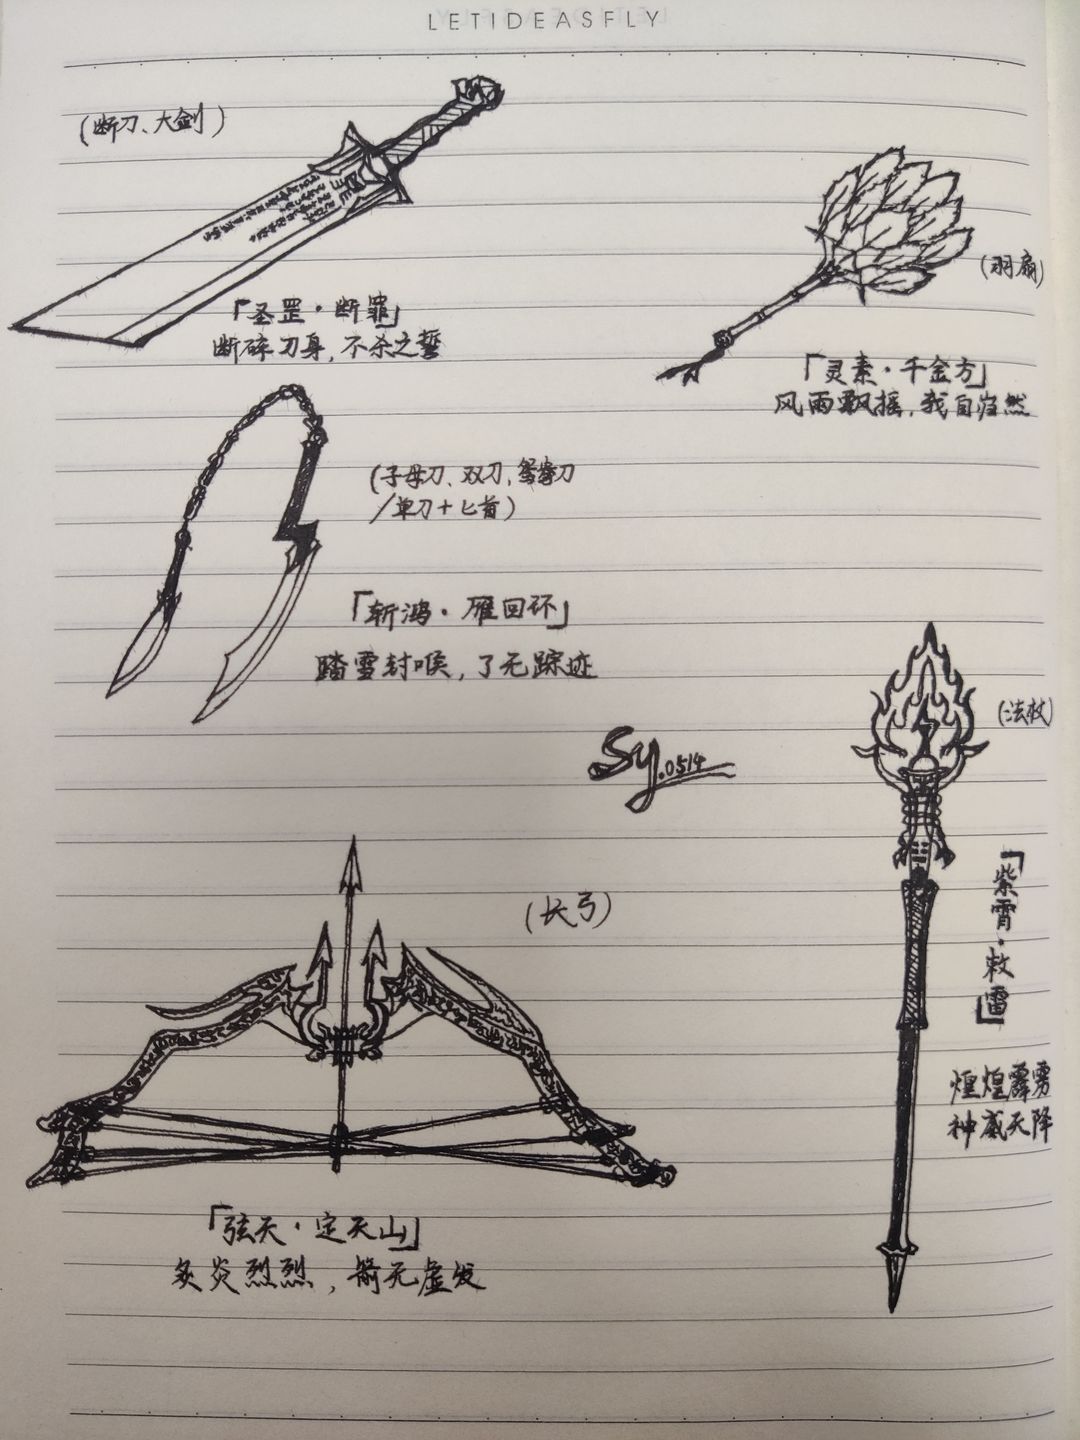 LETIDEASFLY
(断刀、大剑)
「圣罡·断罪」
断碎刃身,不杀之誓
(羽扇)
「灵素·千金方」
风雨飘摇,我自岿然
(子母刀、双刀,鸳鸯刀
/单刀+匕首)
「斩鸿·雁回环」
踏雪封喉,了无踪迹
Sy.0514
(法杖)
「紫霄·敕雷」
煌煌霹雳
神威天降
(长弓)
「弦天·定天山」
炙炎烈烈,箭无虚发